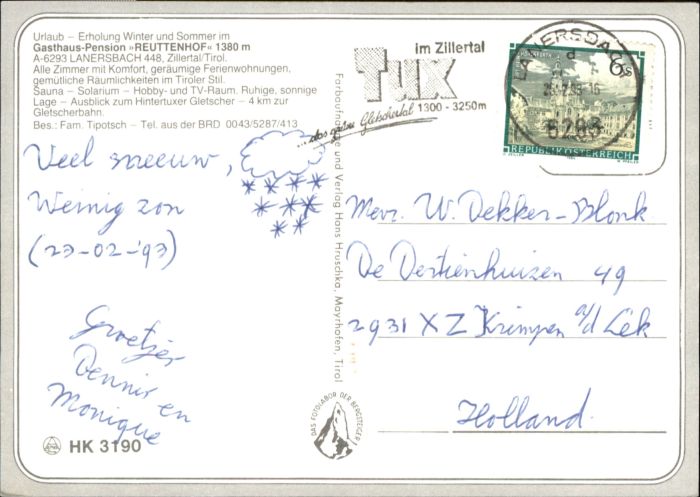 Urlaub – Erholung Winter und Sommer im
Gasthaus-Pension »REUTTENHOF« 1380 m
A-6293 LANERSBACH 448, Zillertal/Tirol.
Alle Zimmer mit Komfort, geräumige Ferienwohnungen,
gemütliche Räumlichkeiten im Tiroler Stil.
Sauna – Solarium – Hobby- und TV-Raum. Ruhige, sonnige
Lage – Ausblick zum Hintertuxer Gletscher – 4 km zur
Gletscherbahn.
Bes.: Fam. Tipotsch – Tel. aus der BRD 0043/5287/413
im Zillertal
TUX
1300 - 3250m
...das ganze Gletschertal
LANERSBACH
6293
6S
REPUBLIK ÖSTERREICH
Veel sneeuw,
Weinig zon
(23-02-'93)
Groetjes
Dennis en
Monique
HK 3190
Farbaufnahme und Verlag Hans Hruschka, Mayrhofen, Tirol
DAS FOTOLABOR DER BERGSTEIGER!
Mevr. W. Dekker-Blonk
De Dertienhuizen 49
2931 XZ Krimpen a/d Lek
Holland.